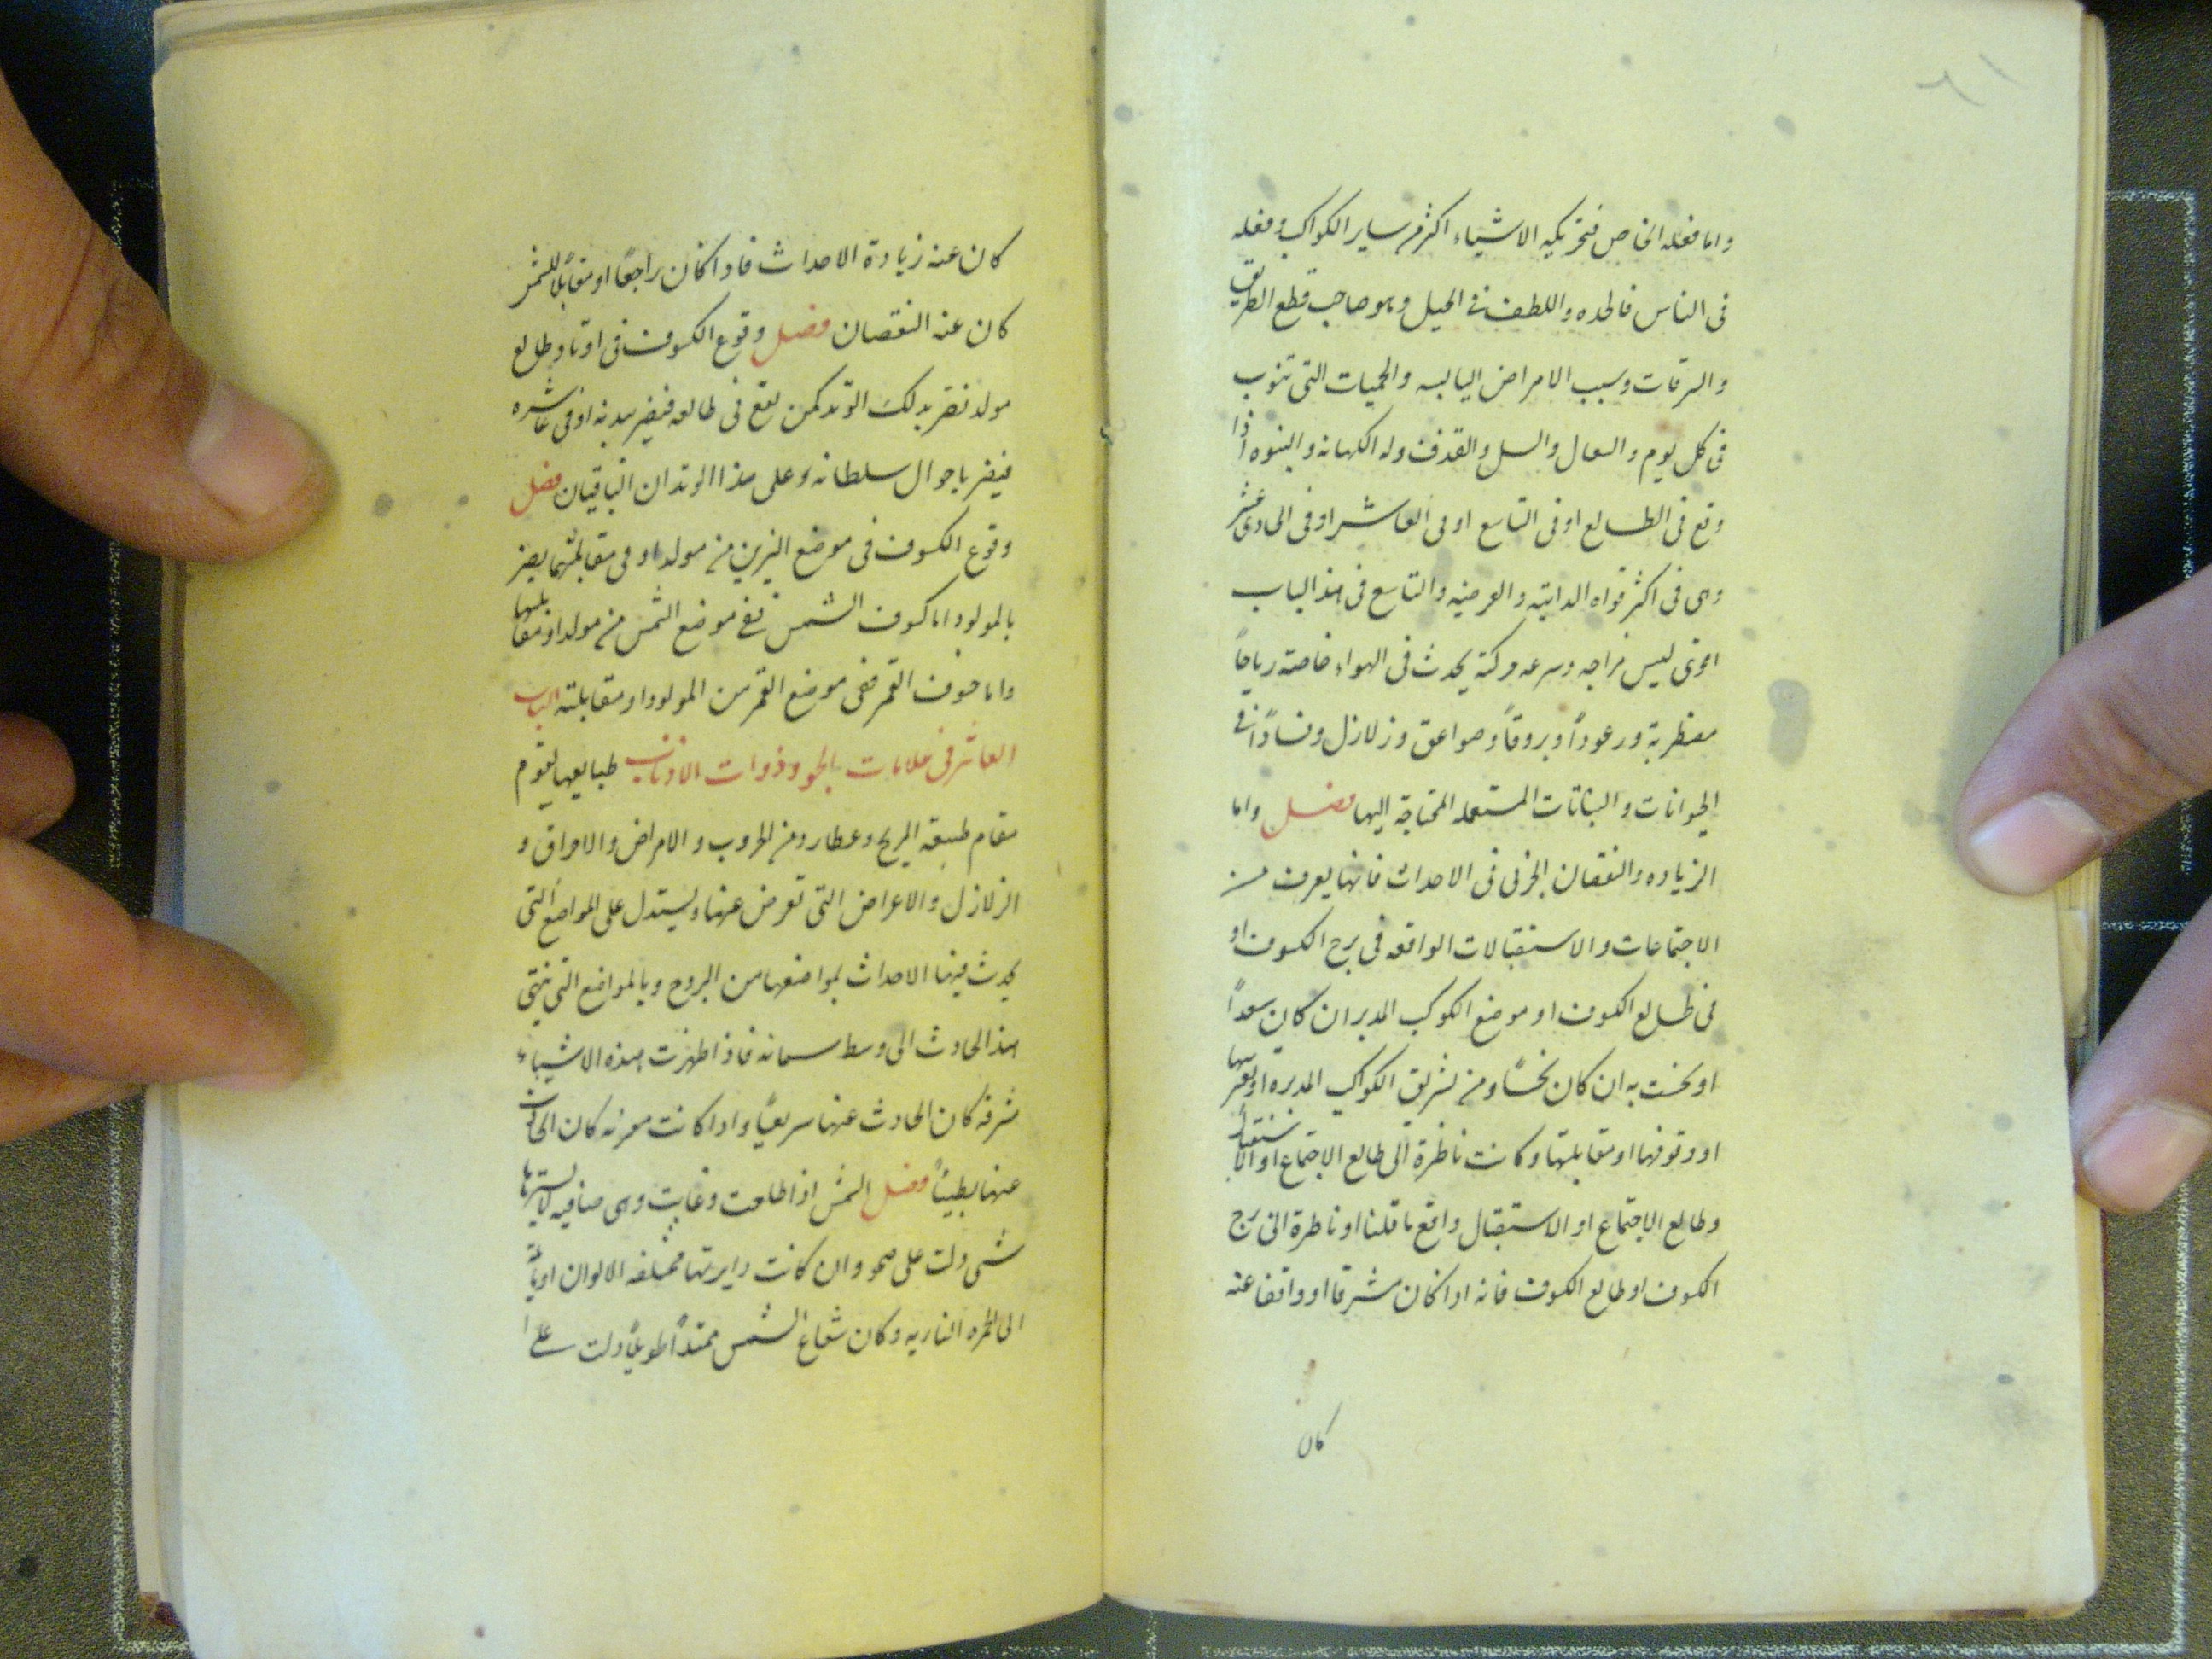 واما فعله الخاص فتحريكه الاشياء اكثر من ساير الكواكب وفعله
فى الناس فالحده واللطف فى الحيل وهو صاحب قطع الطريق
والسرقات وسبب الامراض اليابسه والحميات التى تنوب
فى كل يوم والسعال والسل والقذف وله الكهانه والنبوه اذا
وقع فى الطالع او فى التاسع او فى العاشر او فى الحادى عشر
وهى فى اكثر قواه الذاتيه والعرضيه والتاسع فى هذا الباب
اقوى ليبس مزاجه وسرعه حركته يحدث فى الهواء خاصته رياحاً
مضطربة ورعوداً وبروقاً وصواعق وزلازل وفساداً فى
الحيوانات والنباتات المستعمله المحتاجة اليها فصل واما
الزياده والنقصان الجزئى فى الاحداث فانها يعرف من
الاجتماعات والاستقبالات الواقعه فى برج الكسوف او
فى طالع الكسوف او موضع الكوكب المدبر ان كان سعداً
او نحست به ان كان نحساً ومن تشريق الكواكب المدبره او تغريبها
او وقوفها او مقابلتها وكانت ناظرة الى طالع الاجتماع او الاستقبال
وطالع الاجتماع او الاستقبال واقع ما قلنا او ناظرة الى برج
الكسوف او طالع الكسوف فانه اذا كان مشرقا او واقفا عنه
كان
٦١
كان عنه زيادة الاحداث فاذا كان راجعاً او مقابلاً للشمس
كان عنه النقصان فصل وقوع الكسوف فى اوتاد طالع
مولد تضر بذلك الوتد كمن يقع فى طالعه فيضر ببدنه او فى عاشره
فيضر باحوال سلطانه وعلى هذا الوتدان الباقيان فصل
وقوع الكسوف فى موضع النيرين من مولد او فى مقابلتهما يضر
بالمولود اما كسوف الشمس ففى موضع الشمس من مولد او مقابلتها
واما خسوف القمر ففى موضع القمر من المولود او مقابلته الباب
العاشر فى علامات الجو وذوات الاذناب طبايعها يقوم
مقام طبيعة المريخ وعطارد من الحروب والامراض والاحراق و
الزلازل والاعراض التى تعرض عنها ويستدل على المواضع التى
يحدث فيها الاحداث بمواضعها من البروج وبالمواضع التى ينتهى
هذا الحادث الى وسط سمائه فاذا ظهرت هذه الاشياء
شرقه كان الحادث عنها سريعاً واذا كانت مغربه كان الحادث
عنها بطيئاً فصل الشمس اذا طلعت وغابت وهى صافيه لا يسترها
شى دلت على صحو وان كانت دايرتها مختلفه الالوان او مائلة
الى الحمره الناريه وكان شعاع الشمس ممتداً طويلاً دلت على